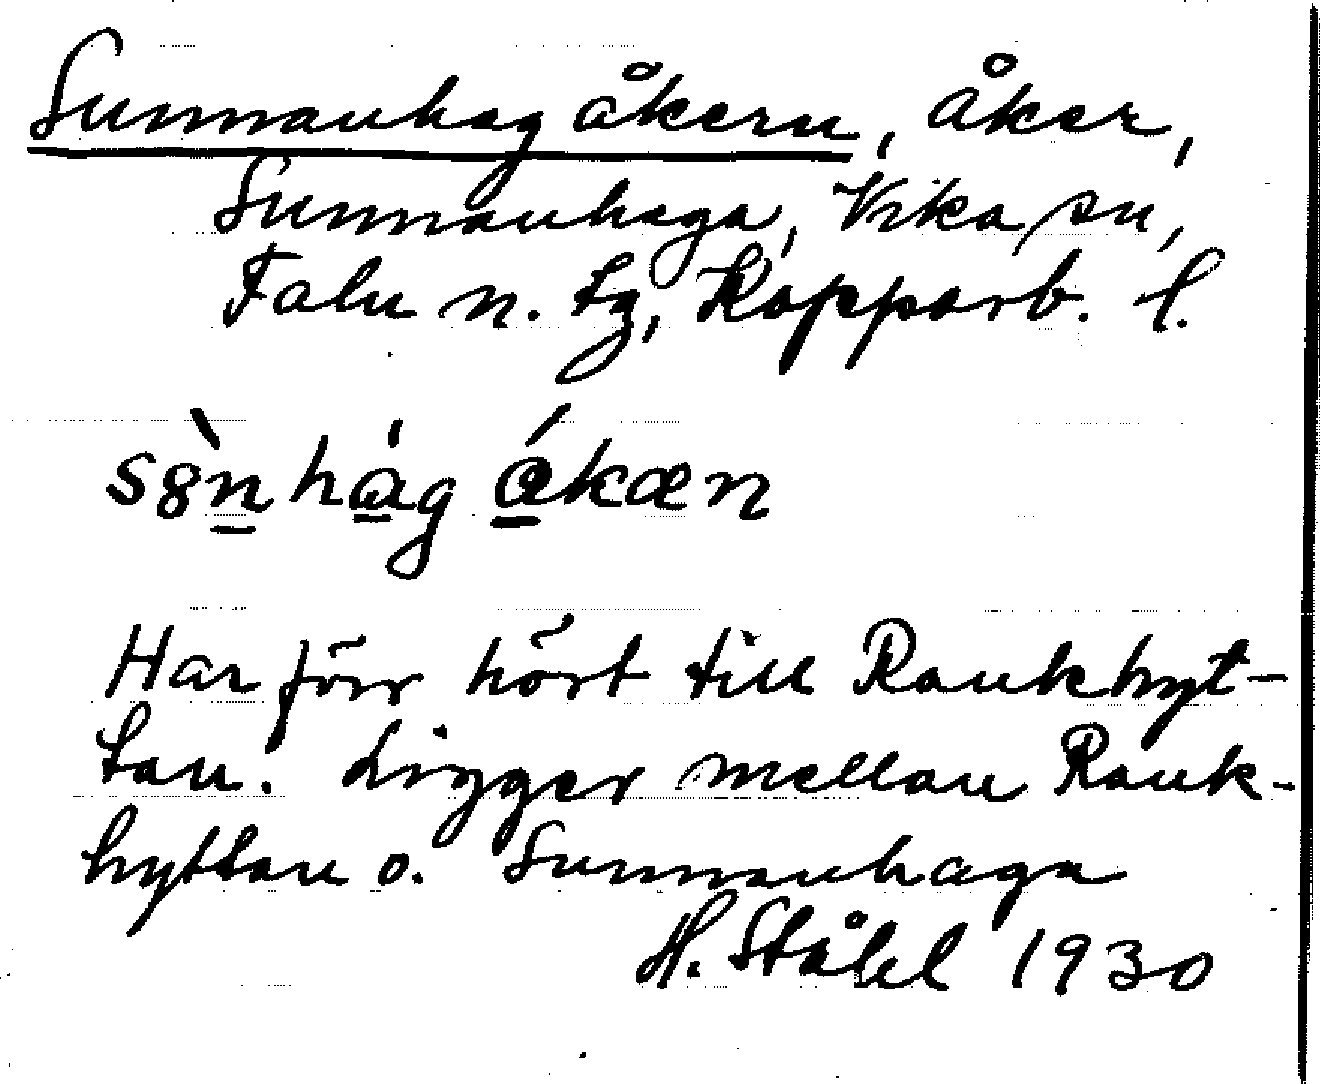 Sunnanhag åkern, åker,
Sunnanhaga, Vika sn,
Falu n. tg, Kopparb. l.
Har förr hört till Rankhyt-
tan. Ligger mellan Rank-
hyttan o. Sunnanhaga
H. Ståhl 1930